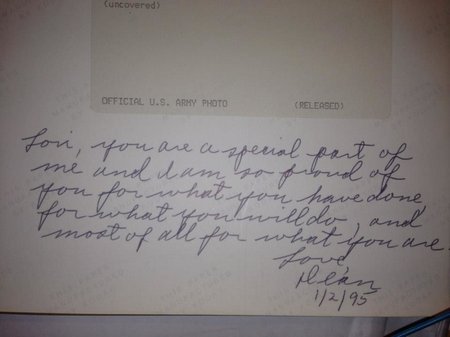 (uncovered)
OFFICIAL U.S. ARMY PHOTO (RELEASED)
Lori, you are a special part of
me and I am so proud of
you for what you have done,
for what you will do, and
most of all for what you are.
Love,
Dean
1/2/95